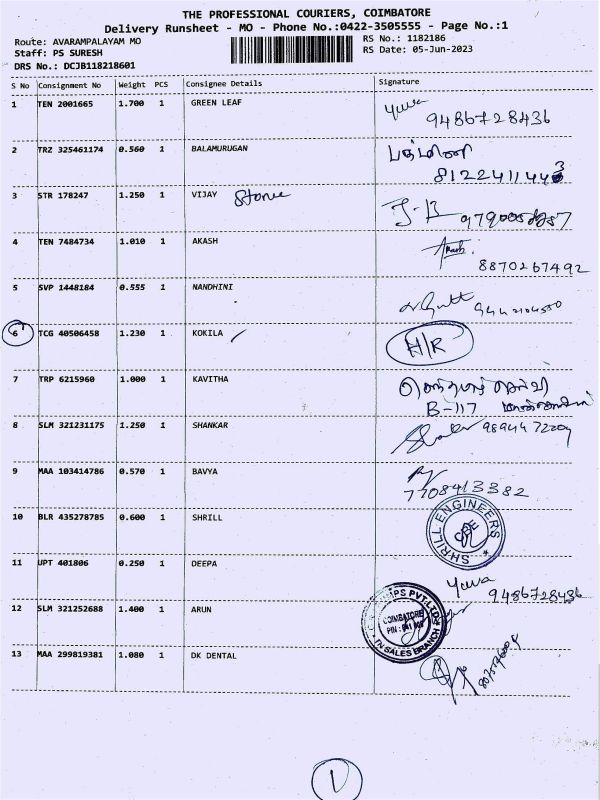 THE PROFESSIONAL COURIERS, COIMBATORE
Delivery Runsheet - MO - Phone No.:0422-3505555 - Page No.:1
Route: AVARAMPALAYAM MO RS No.: 1182186
Staff: PS SURESH RS Date: 05-Jun-2023
DRS No.: DCJB118218601
S No Consignment No Weight PCS Consignee Details Signature
1 TEN 2001665 1.700 1 GREEN LEAF Yuva
9486728436
2 TRZ 325461174 0.560 1 BALAMURUGAN பத்மினி
3 STR 178247 1.250 1 VIJAY Stone J-B
4 TEN 7484734 1.010 1 AKASH
8870267492
5 SVP 1448184 0.555 1 NANDHINI
6 TCG 40506458 1.230 1 KOKILA H/R
7 TRP 6215960 1.000 1 KAVITHA
B-117
8 SLM 321231175 1.250 1 SHANKAR
9 MAA 103414786 0.570 1 BAVYA
7708413382
10 BLR 435278785 0.600 1 SHRILL SHRILL ENGINEERS CBE
11 UPT 401806 0.250 1 DEEPA Yuva
9486728436
12 SLM 321252688 1.400 1 ARUN PVT LTD
COIMBATORE
TN SALES BRANCH
13 MAA 299819381 1.080 1 DK DENTAL
1